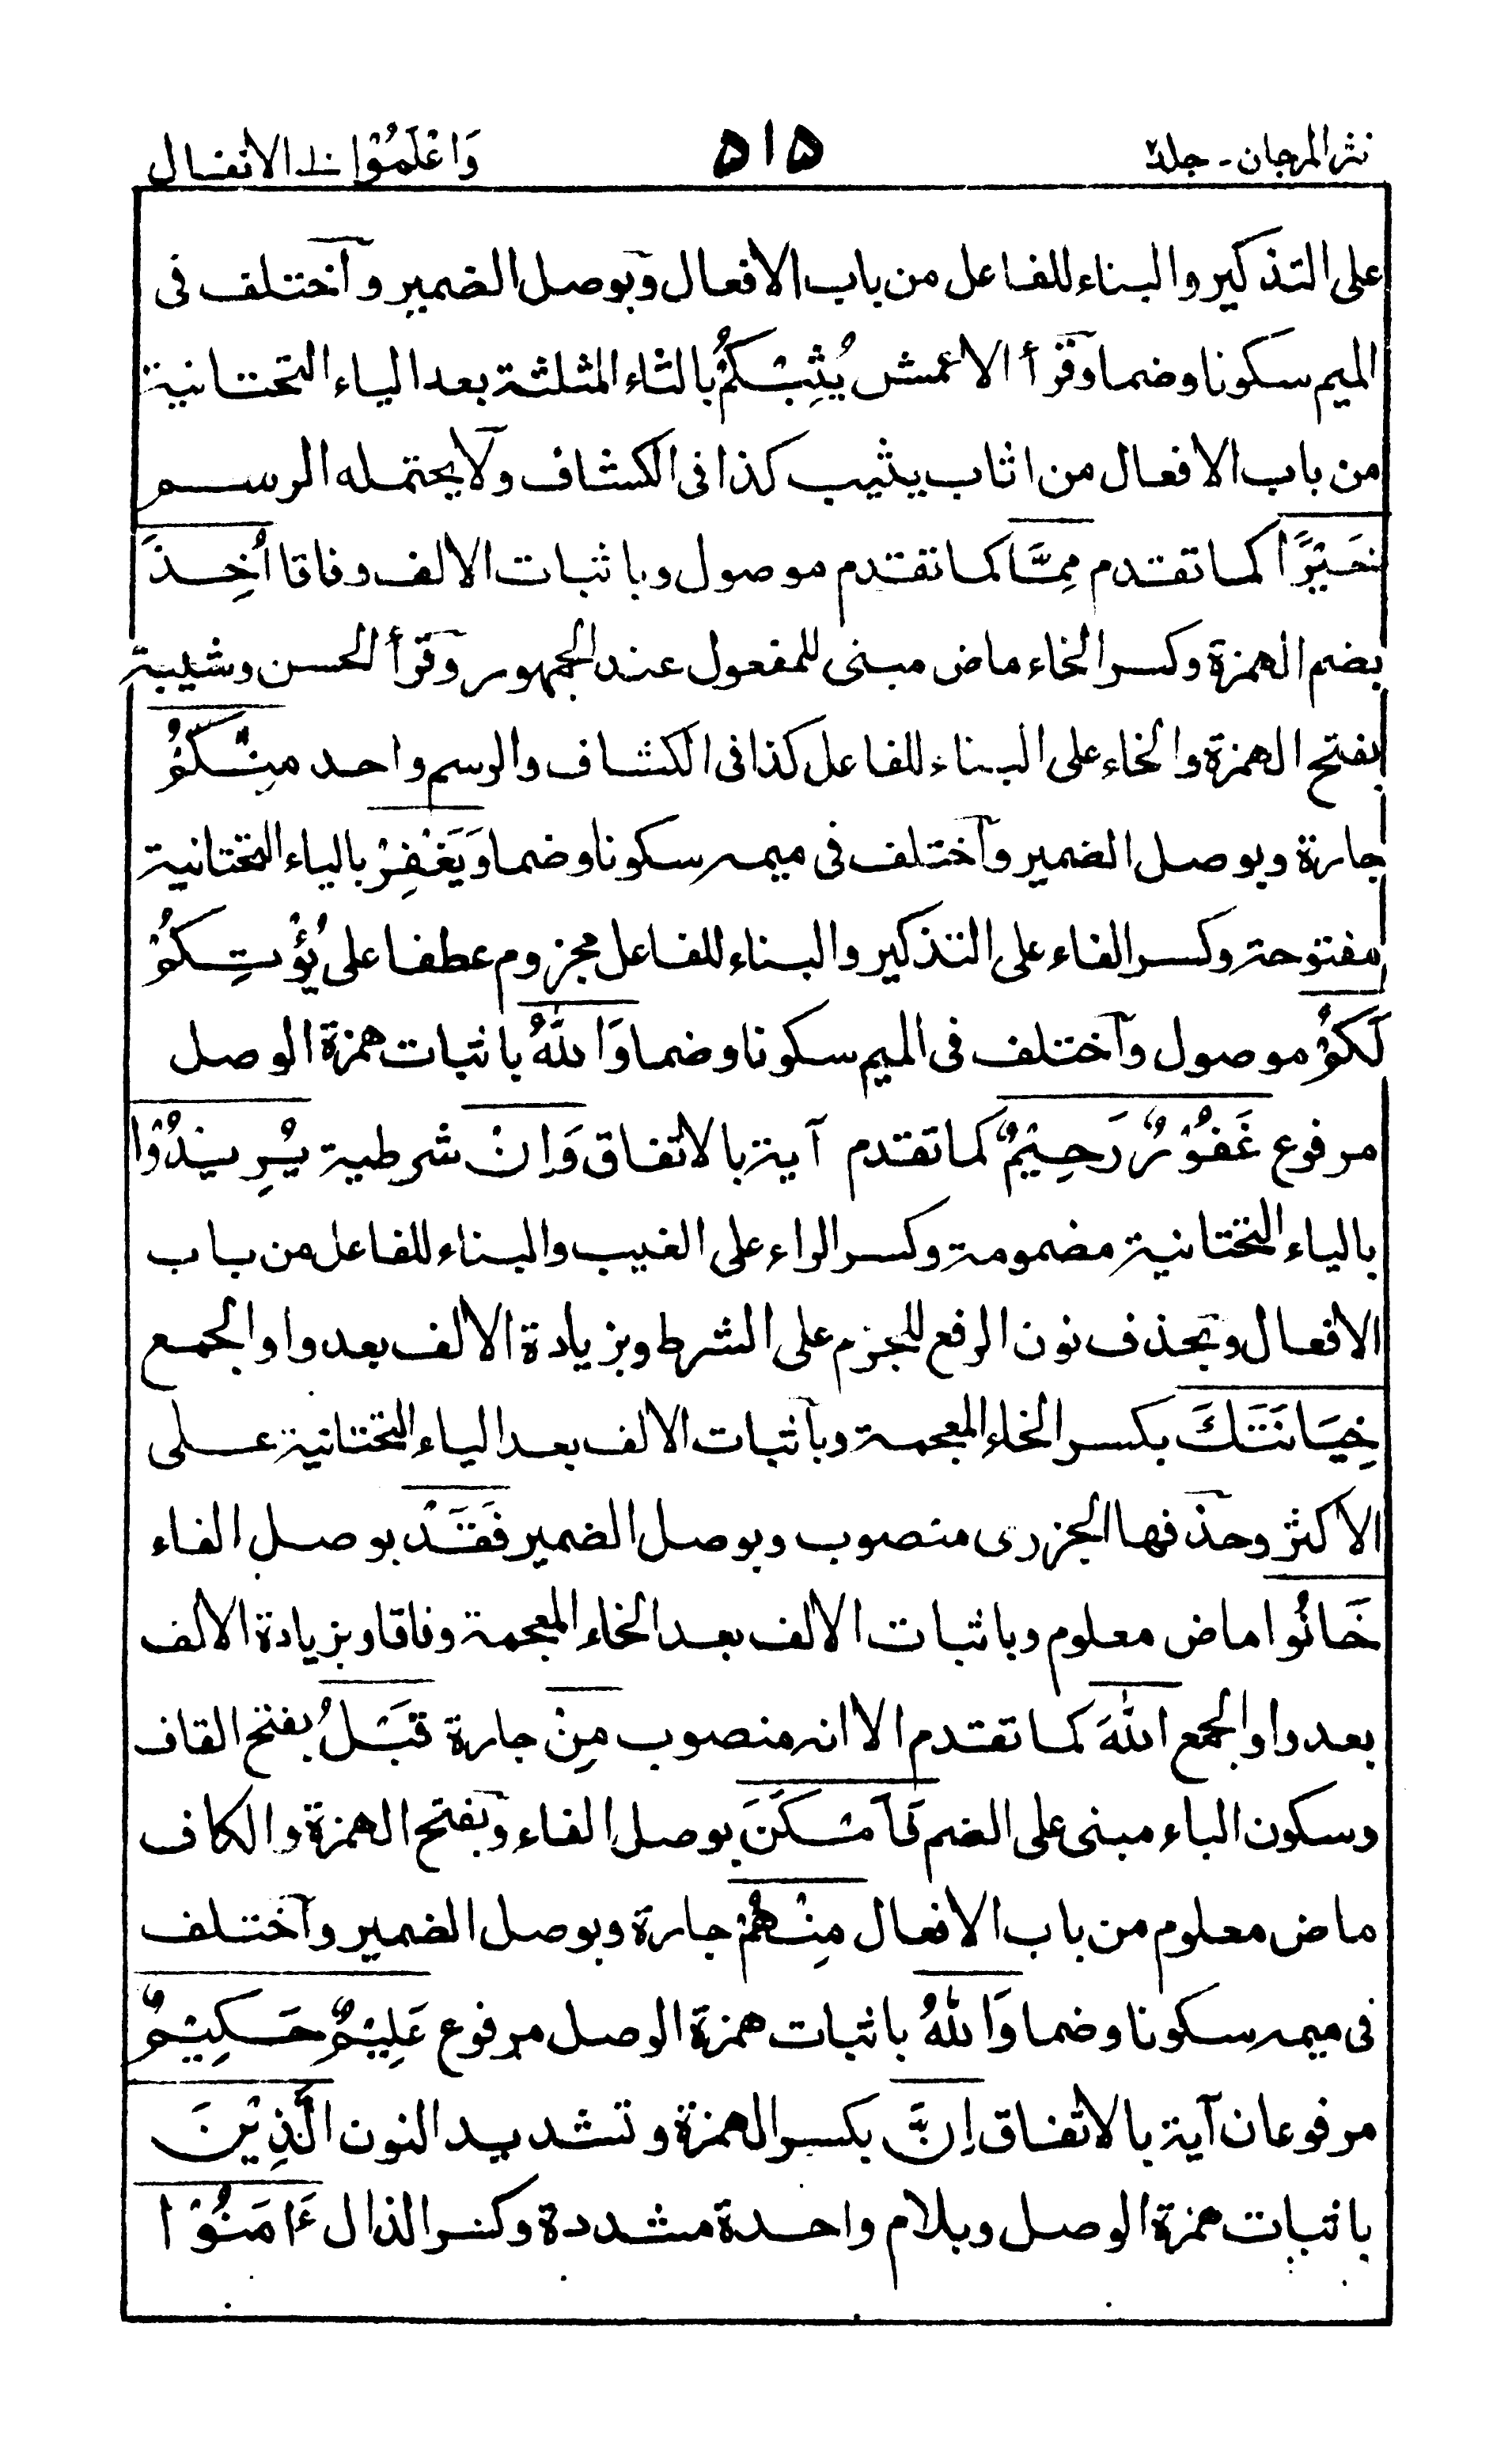 نثر المرجان - جلد ٢
٥١٥
وَاعْلَمُوْا ١٠ الانفال
على التذكير والبناء للفاعل من باب الافعال وبوصل الضمير وآختلف فى
الميم سكونا وضما وقرأ الاعمش يُثِبْكُمْ بالثاء المثلثة بعد الياء التحتانية
من باب الافعال من اثاب يثيب كذا فى الكشاف ولا يحتمله الرسم
خَيْرًا كما تقدم مِمَّا كما تقدم موصول وباثبات الالف وفاقا اُخِذَ
بضم الهمزة وكسر الخاء ماض مبنى للمفعول عند الجمهور وقرأ الحسن وشيبة
بفتح الهمزة والخاء على البناء للفاعل كذا فى الكشاف والرسم واحد مِنْكُمْ
جارة وبوصل الضمير وآختلف فى ميمه سكونا وضما وَيَغْفِرْ بالياء التحتانية
مفتوحة وكسر الفاء على التذكير والبناء للفاعل مجزوم عطفا على يُؤْتِكُمْ
لَكُمْ موصول وآختلف فى الميم سكونا وضما وَاللهُ باثبات همزة الوصل
مرفوع غَفُوْرٌ رَحِيْمٌ كما تقدم آية بالاتفاق وَاِنْ شرطية يُرِيْدُوْا
بالياء التحتانية مضمومة وكسر الراء على الغيب والبناء للفاعل من باب
الافعال وبحذف نون الرفع للجزم على الشرط وبزيادة الالف بعد واو الجمع
خِيَانَتَكَ بكسر الخاء المعجمة وبآثبات الالف بعد الياء التحتانية على
الاكثر وحذفها الجزرى منصوب وبوصل الضمير فَقَدْ بوصل الفاء
خَانُوا ماض معلوم وباثبات الالف بعد الخاء المعجمة وفاقا وبزيادة الالف
بعد واو الجمع اللهَ كما تقدم الا انه منصوب مِنْ جارة قَبْلُ بفتح القاف
وسكون الباء مبنى على الضم فَاَمْكَنَ بوصل الفاء وبفتح الهمزة والكاف
ماض معلوم من باب الافعال مِنْهُمْ جارة وبوصل الضمير وآختلف
فى ميمه سكونا وضما وَاللهُ باثبات همزة الوصل مرفوع عَلِيْمٌ حَكِيْمٌ
مرفوعان آية بالاتفاق اِنَّ بكسر الهمزة وتشديد النون الَّذِيْنَ
باثبات همزة الوصل وبلام واحدة مشددة وكسر الذال ءَامَنُوْا